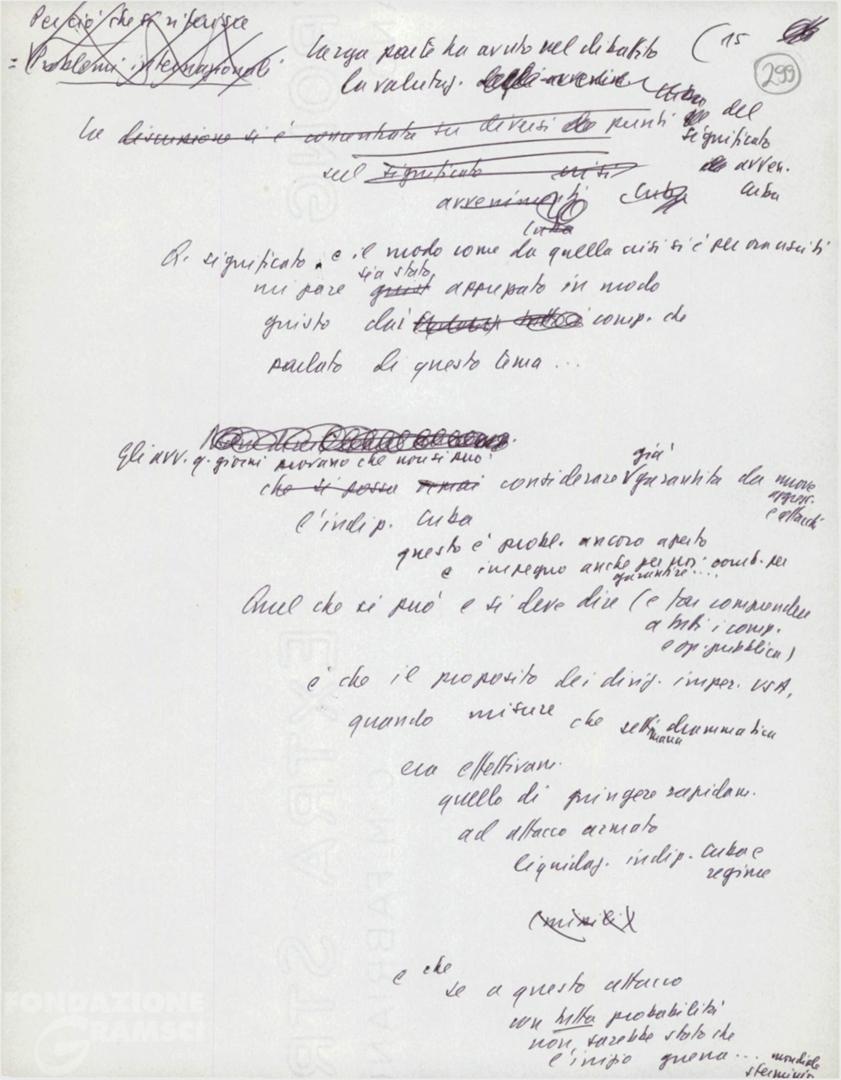 Perciò che si riferisce
= Problemi internazionali
(15
299
larga parte ha avuto nel dibattito
la valutaz. degli avvenim. Cuba
La discussione si è concentrata su diversi punti
del significato
avven. Cuba
sul significato crisi
avvenimenti Cuba
Cuba
Q. significato e il modo come da quella crisi si è per ora usciti
mi pare sia stato apprezzato in modo
giusto dai comp. che
parlato di questo tema ...
Gli avv. q. giorni provano che non si può
che si possa considerare già garantita da nuove aggress. e attacchi
l'indip. Cuba
questo è probl. ancora aperto
e impegno anche per noi comb. per
garantire....
Quel che si può e si deve dire (e far comprendere
a tutti i comp.
e op. pubblica)
è che il proposito dei dirig. imper. USA,
quando misure che settimana drammatica
era effettivam.
quello di giungere rapidam.
ad attacco armato
liquidaz. indip. Cuba e
regime
(missili)
e che
se a questo attacco
con tutta probabilità
non sarebbe stato che
l'inizio guerra ... mondiale
sterminio
FONDAZIONE
GRAMSCI
EXTRA STR
CM FABRIANO